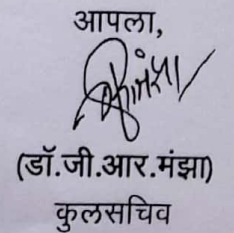 आपला,
(डॉ.जी.आर.मंझा)
कुलसचिव